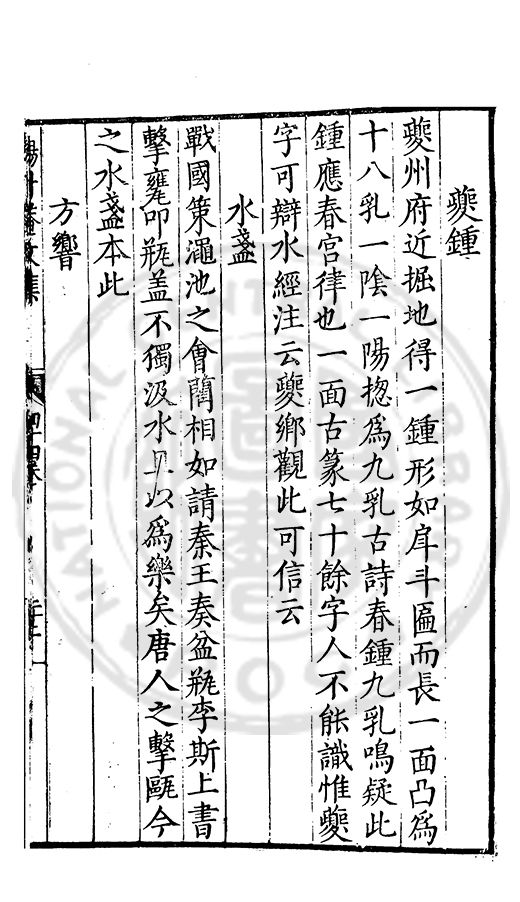 夔鍾
夔州府近掘地得一鍾形如戽斗匾而長一面凸爲
十八乳一陰一陽揔爲九乳古詩春鍾九乳鳴疑此
鍾應春宮律也一面古篆七十餘字人不能識惟夔
字可辯水經注云夔鄉觀此可信云
水盞
戰國策澠池之會藺相如請秦王奏盆瓶李斯上書
擊甕叩瓶盖不獨汲水且以爲樂矣唐人之擊甌今
之水盞本此
方響